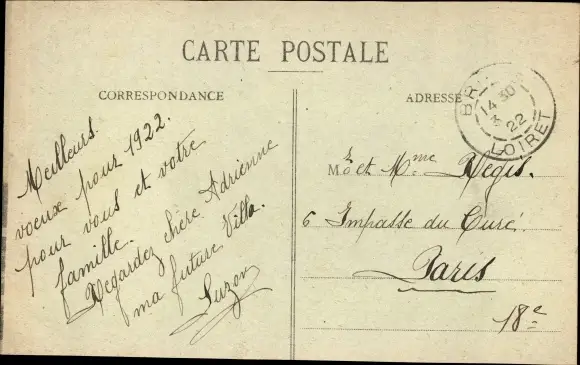 CARTE POSTALE
CORRESPONDANCE
Meilleurs
voeux pour 1922.
pour vous et votre
famille.
Regardez chère Adrienne
ma future Villa.
Suzon
ADRESSE
14 30
22
LOIRET
M. et Mme Regis.
6 Impasse du Curé.
Paris
18e